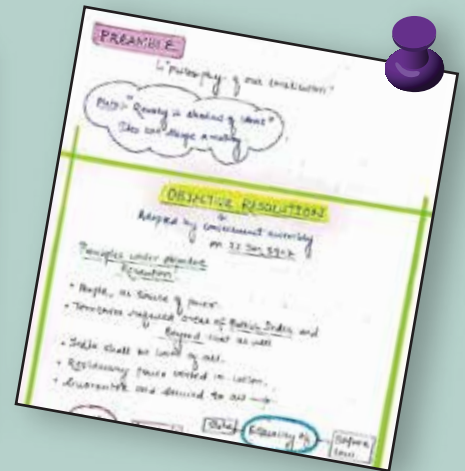 PREAMBLE
"philosophy of our constitution"
Plato: "Reality is shadow of ideas"
Idea can shape reality
OBJECTIVE RESOLUTION
Adopted by constituent assembly
on 22 Jan, 1947
Principles under objective
Resolution
• People, as source of power.
• Territories required areas of British India and
Beyond that as well
• India shall be of all.
• Residuary power vested in union.
• Guarantee and secured to all →
Status Equality of Before
law